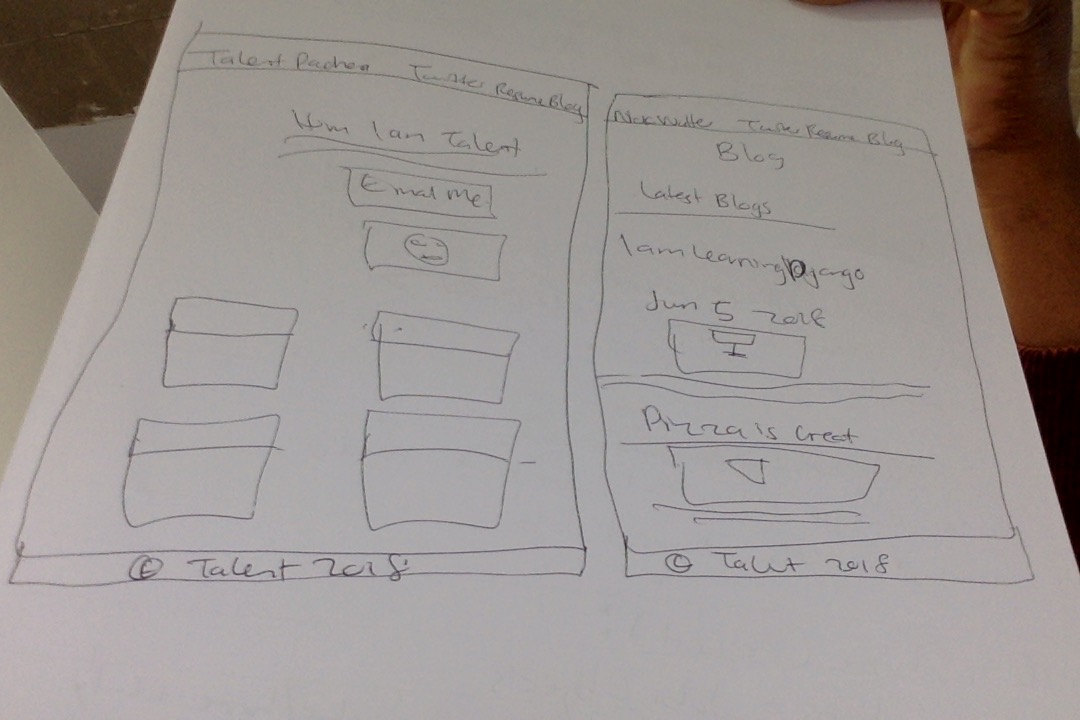 Talent Pachea Twitter Resume Blog
Hi I am Talent
Email Me
© Talent 2018
Twitter Resume Blog
Blog
Latest Blogs
I am learning Django
Jun 5 2018
Pizza is Great
© Talent 2018